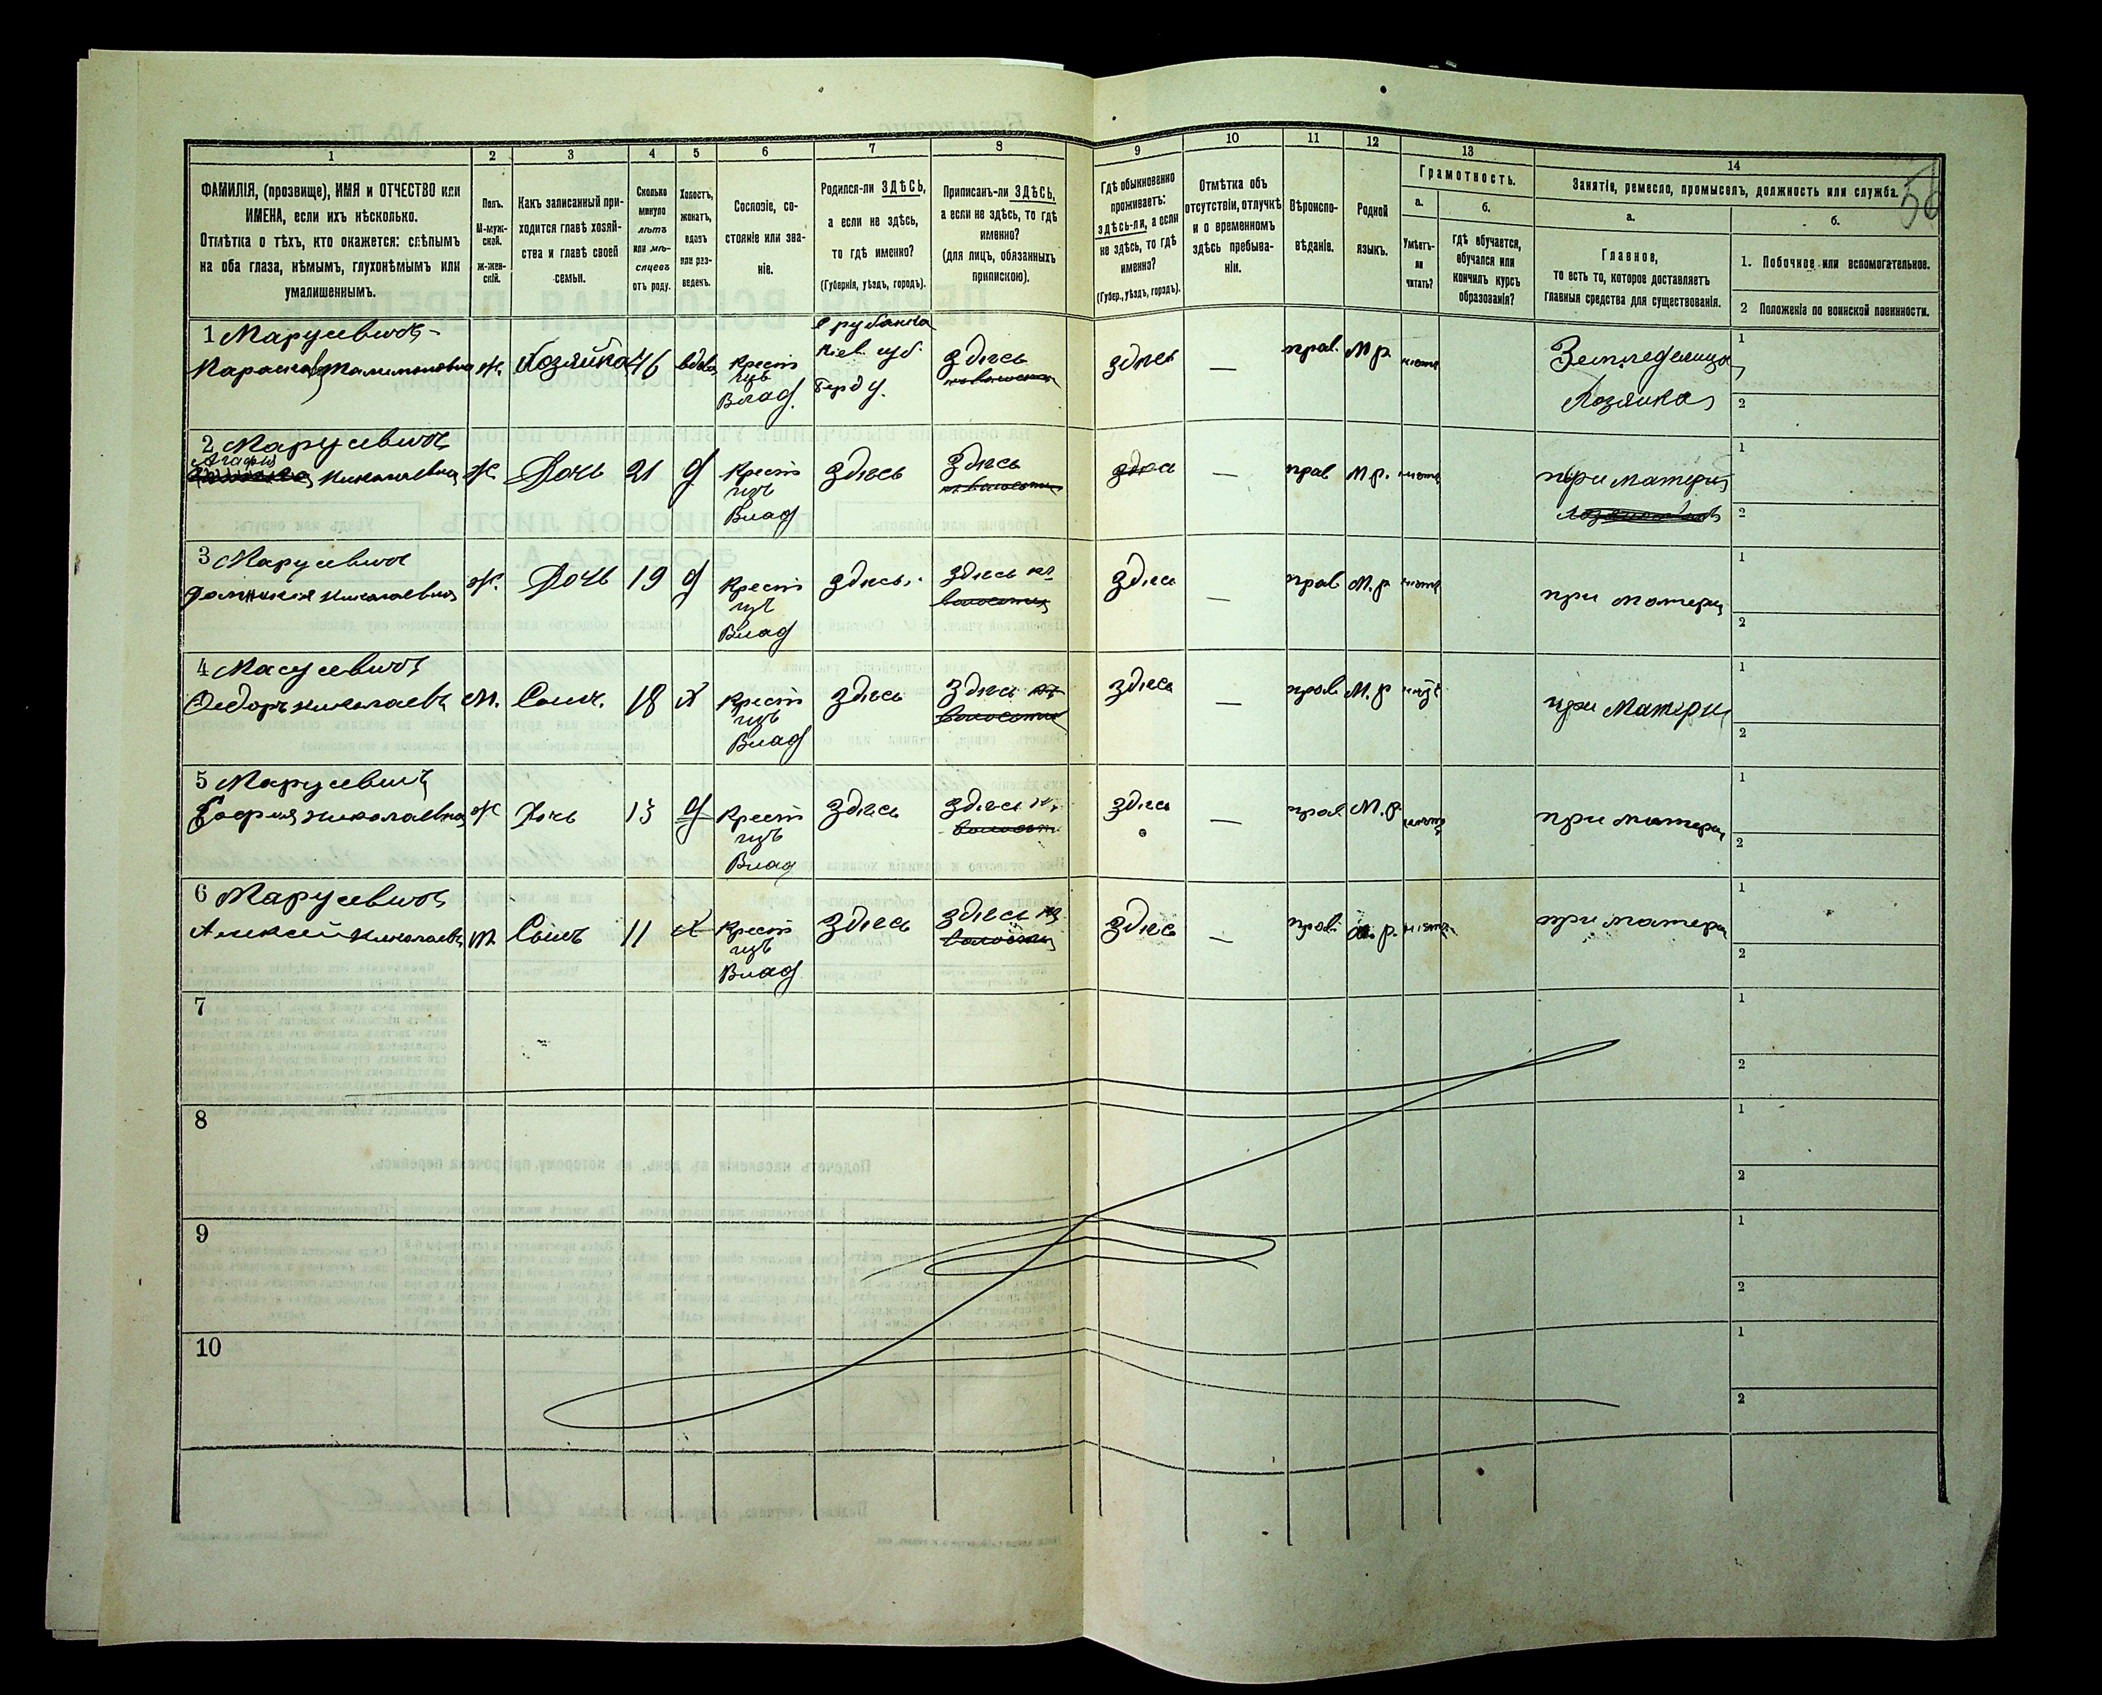 56
1 2 3 4 5 6 7 8 9 10 11 12 13 14
ФАМИЛІЯ, (прозвище), ИМЯ и ОТЧЕСТВО или ИМЕНА, если ихъ нѣсколько.
Отмѣтка о тѣхъ, кто окажется: слѣпымъ на оба глаза, нѣмымъ, глухонѣмымъ или умалишеннымъ.
Полъ.
М-муж-
ской.
ж-жен-
скій.
Какъ записанный при-
ходится главѣ хозяй-
ства и главѣ своей
семьи.
Сколько
минуло
лѣтъ
или мѣ-
сяцевъ
отъ роду.
Холостъ,
женатъ,
вдовъ
или раз-
веденъ.
Сословіе, со-
стояніе или зва-
ніе.
Родился-ли ЗДѢСЬ,
а если не здѣсь,
то гдѣ именно?
(Губернія, уѣздъ, городъ).
Приписанъ-ли ЗДѢСЬ,
а если не здѣсь, то гдѣ
именно?
(для лицъ, обязанныхъ
припискою).
Гдѣ обыкновенно
проживаетъ:
здѣсь-ли, а если
не здѣсь, то гдѣ
именно?
(Губер., уѣздъ, городъ).
Отмѣтка объ
отсутствіи, отлучкѣ
и о временномъ
здѣсь пребыва-
ніи.
Вѣроиспо-
вѣданіе.
Родной
языкъ.
Грамотность.
а.
Умѣетъ-
ли
читать?
б.
гдѣ обучается,
обучался или
кончилъ курсъ
образованія?
Занятіе, ремесло, промыселъ, должность или служба.
а.
Главное,
то есть то, которое доставляетъ
главныя средства для существованія.
б.
1. Побочное или вспомогательное.
2 Положеніе по воинской повинности.
1 Марусевичъ
Параскева Ж. Хозяйка 46 вдова Крест изъ Влад. Кіев. губ. Берд у. здѣсь здѣсь — прав. М р. нѣтъ Земледелица Хозяйка 1 2
2 Марусевичъ
Агафия Николаевна Ж Дочь 21 д Крест изъ Влад здѣсь здѣсь здѣсь — прав М р. нѣтъ при матери 1 2
3 Марусевич
Николаевна Ж. Дочь 19 д Крест изъ Влад здѣсь здѣсь здѣсь — прав М. р нѣтъ при матери 1 2
4 Масусевичъ
Федоръ Николаевъ М. Сынъ. 18 х Крест изъ Влад здѣсь здѣсь здѣсь — прав М. р при Матери 1 2
5 Марусевичъ
София Николаевна Ж Дочь 13 д Крест изъ Влад здѣсь здѣсь здѣсь — прав М. р. нѣтъ при матери 1 2
6 Марусевичъ
Алексей Николаевъ м. Сынъ 11 х Крест изъ Влад здѣсь здѣсь здѣсь — прав м. р. нѣтъ при матери 1 2
7 1 2
8 1 2
9 1 2
10 1 2